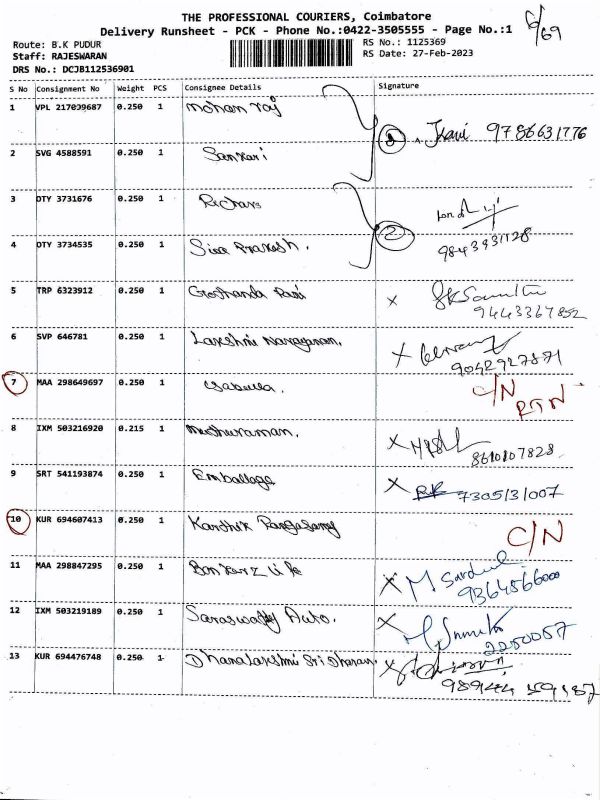 THE PROFESSIONAL COURIERS, Coimbatore
Delivery Runsheet - PCK - Phone No.:0422-3505555 - Page No.:1
6/69
Route: B.K PUDUR
RS No.: 1125369
Staff: RAJESWARAN
RS Date: 27-Feb-2023
DRS No.: DCJB112536901
S No Consignment No Weight PCS Consignee Details Signature
1 VPL 217039687 0.250 1 Mohan raj
① 9786631776
2 SVG 4588591 0.250 1 Sankari
3 DTY 3731676 0.250 1 Richars
② 9843931728
4 DTY 3734535 0.250 1 Siva Prakash.
5 TRP 6323912 0.250 1 X
9443367852
6 SVP 646781 0.250 1 Lakshmi Narayanan. X
9042927871
7 MAA 298649697 0.250 1 C/N
RTN
8 IXM 503216920 0.215 1 Muthuraman. X
8610107828
9 SRT 541193874 0.250 1 Emballage X 7305131007
10 KUR 694607413 0.250 1 Karthik Rangasamy C/N
11 MAA 298847295 0.250 1 X
9364566000
12 IXM 503219189 0.250 1 Saraswathy Auto. X
2250057
13 KUR 694476748 0.250 1 Dhanalakshmi Sridharan X